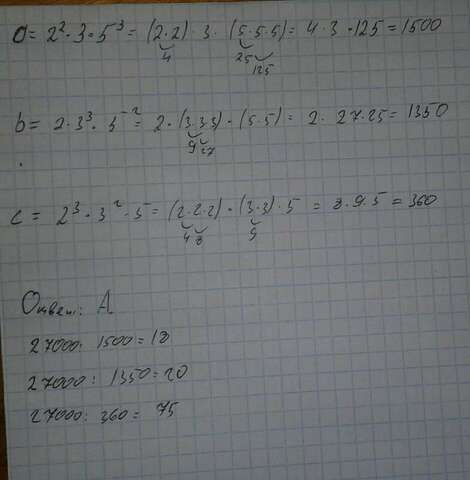 a = 2² · 3 · 5³ = (2·2) · 3 · (5·5·5) = 4 · 3 · 125 = 1500
4 25
125
b = 2 · 3³ · 5² = 2 · (3·3·3) · (5·5) = 2 · 27 · 25 = 1350
9 27
c = 2³ · 3² · 5 = (2·2·2) · (3·3) · 5 = 8 · 9 · 5 = 360
4 8 9
Ответ: А
27000 : 1500 = 18
27000 : 1350 = 20
27000 : 360 = 75